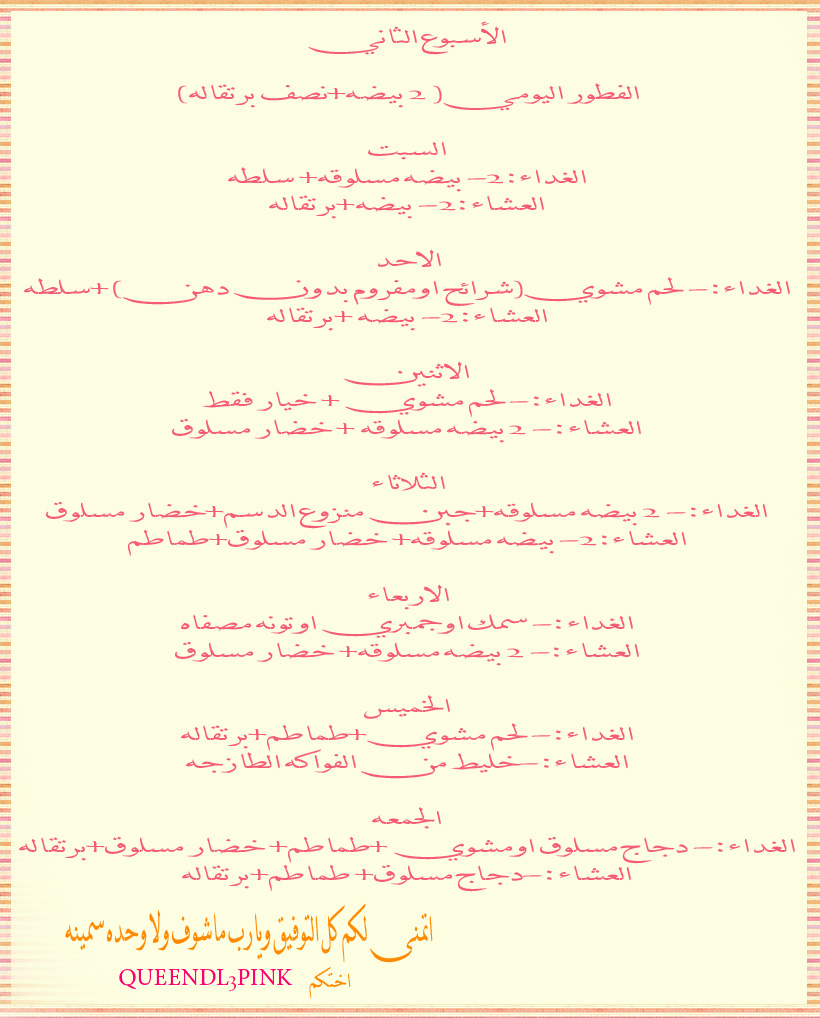 الأسبوع الثاني
الفطور اليومي ( 2 بيضه+نصف برتقاله)
السبت
الغداء :2- بيضه مسلوقه+ سلطه
العشاء :2- بيضه+برتقاله
الاحد
الغداء :- لحم مشوي (شرائح او مفروم بدون دهن )+سلطه
العشاء :2- بيضه +برتقاله
الاثنين
الغداء :- لحم مشوي + خيار فقط
العشاء :- 2 بيضه مسلوقه + خضار مسلوق
الثلاثاء
الغداء :- 2 بيضه مسلوقه+جبن منزوع الدسم+خضار مسلوق
العشاء :2- بيضه مسلوقه+ خضار مسلوق+طماطم
الاربعاء
الغداء :- سمك او جمبري او تونه مصفاه
العشاء :- 2 بيضه مسلوقه+ خضار مسلوق
الخميس
الغداء :- لحم مشوي +طماطم+برتقاله
العشاء :-خليط من الفواكه الطازجه
الجمعه
الغداء :- دجاج مسلوق او مشوي +طماطم+ خضار مسلوق+برتقاله
العشاء :-دجاج مسلوق+ طماطم+برتقاله
اتمنى لكم كل التوفيق ويارب ماشوف ولا وحده سمينه
اختكم QUEENDL3PINK